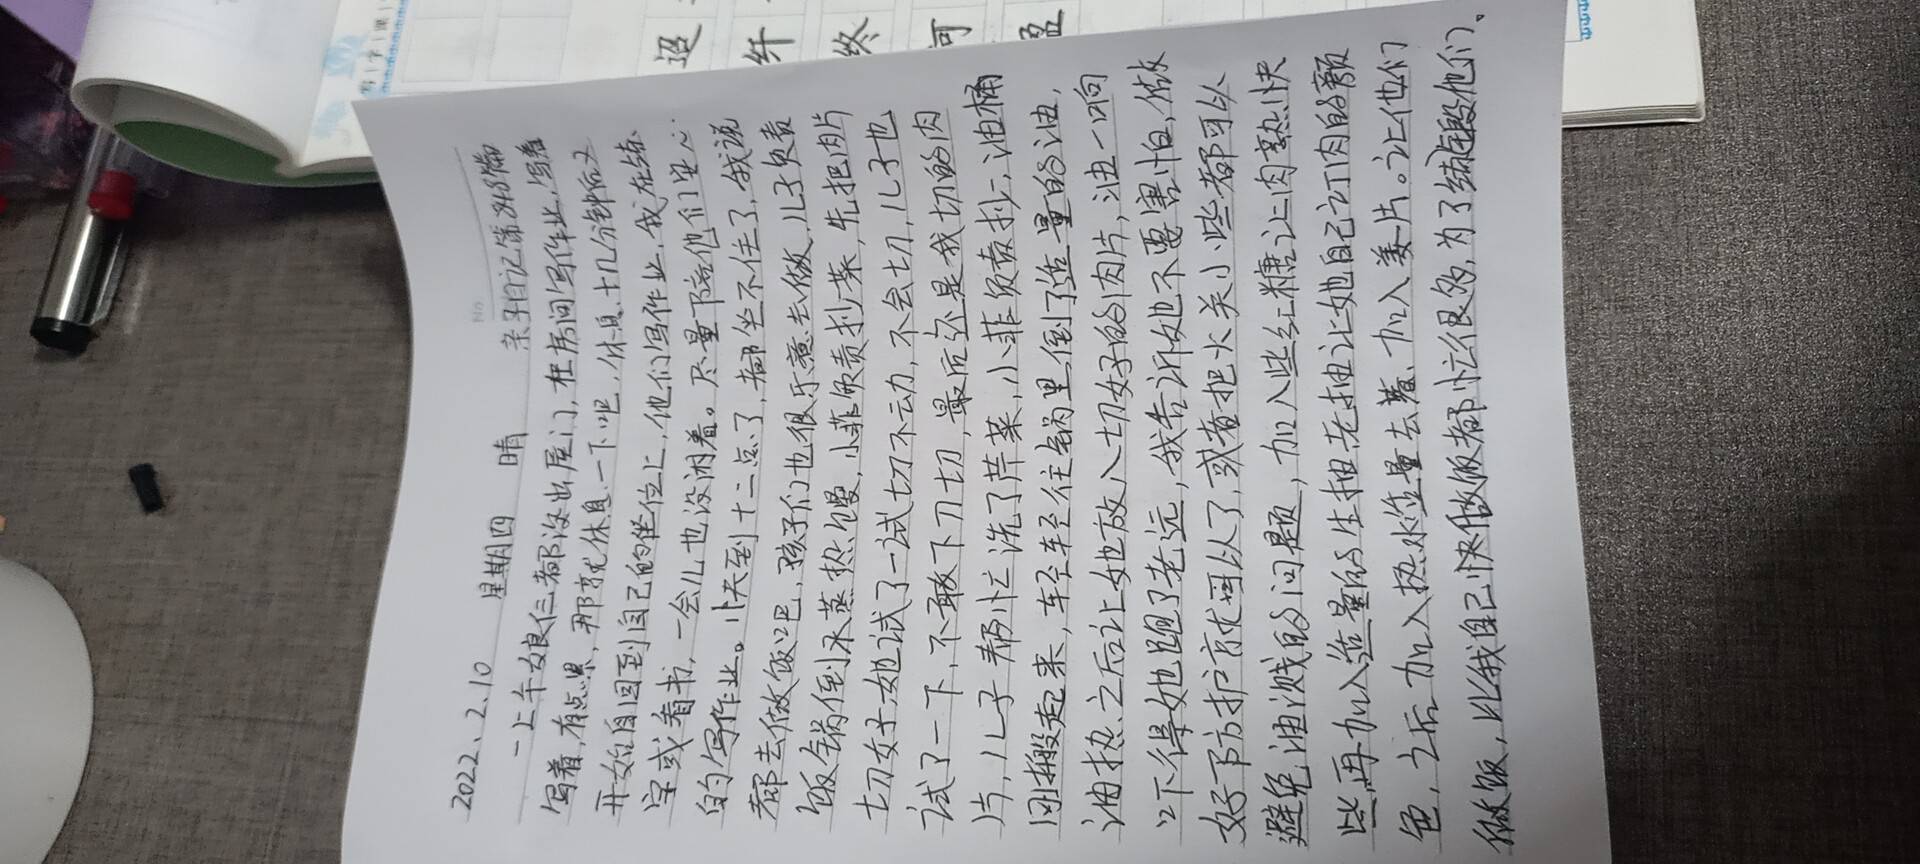 写字课
迢
纤
终
河
盈
No.
2022.2.10 星期四 晴 亲子日记第868篇
一上午娘仨都没出屋门,在房间写作业,写着
写着,有点累,那就休息一下吧,休息十几分钟后又
开始自回到自己的坐位上,他们写作业,我在练
字或看书,一会儿也没闲着。尽量陪他们安心
的写作业。快到十二点了,都坐不住了,我说
都去做饭吧,孩子们也很乐意去做,儿子负责
饭锅倒水蒸热馒,小菲负责抄菜,先把肉片
切好她试了一试切不动,不会切,儿子也
试了一下,不敢下刀切,最后还是我切的肉
片,儿子帮忙洗了芹菜,小菲负责抄,油桶
刚搬起来,轻轻往锅里倒了适量的油,
油热之后让她放入切好的肉片,油一响
吓得她跑了老远,我告诉她不要害怕,做
好防护就可以了,或者把火关小些都可以
避免油溅的问题,加入些红糖让肉熟快
些,再加入适量的生抽老抽让她自己订肉的颜
色,之后加入热水适量去蒸、加入姜片。让他们
做饭,比我自己做饭都忙很多,为了锻炼他们。